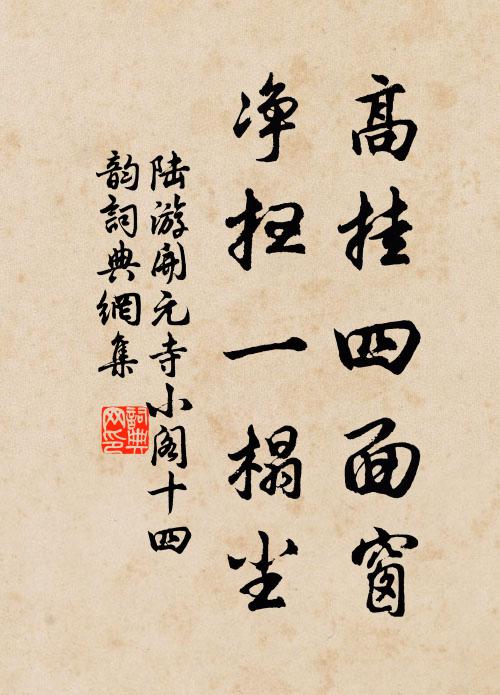 高挂四面窗
净扫一榻尘
陆游開元寺小阁十四
韵詞典網集
詞典网印